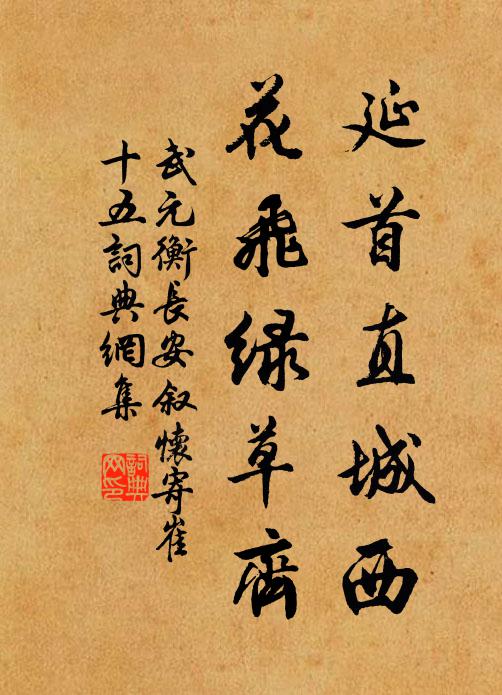 延首直城西
花飛緑草齊
武元衡長安叙懷寄崔
十五詞典網集
詞典
网印